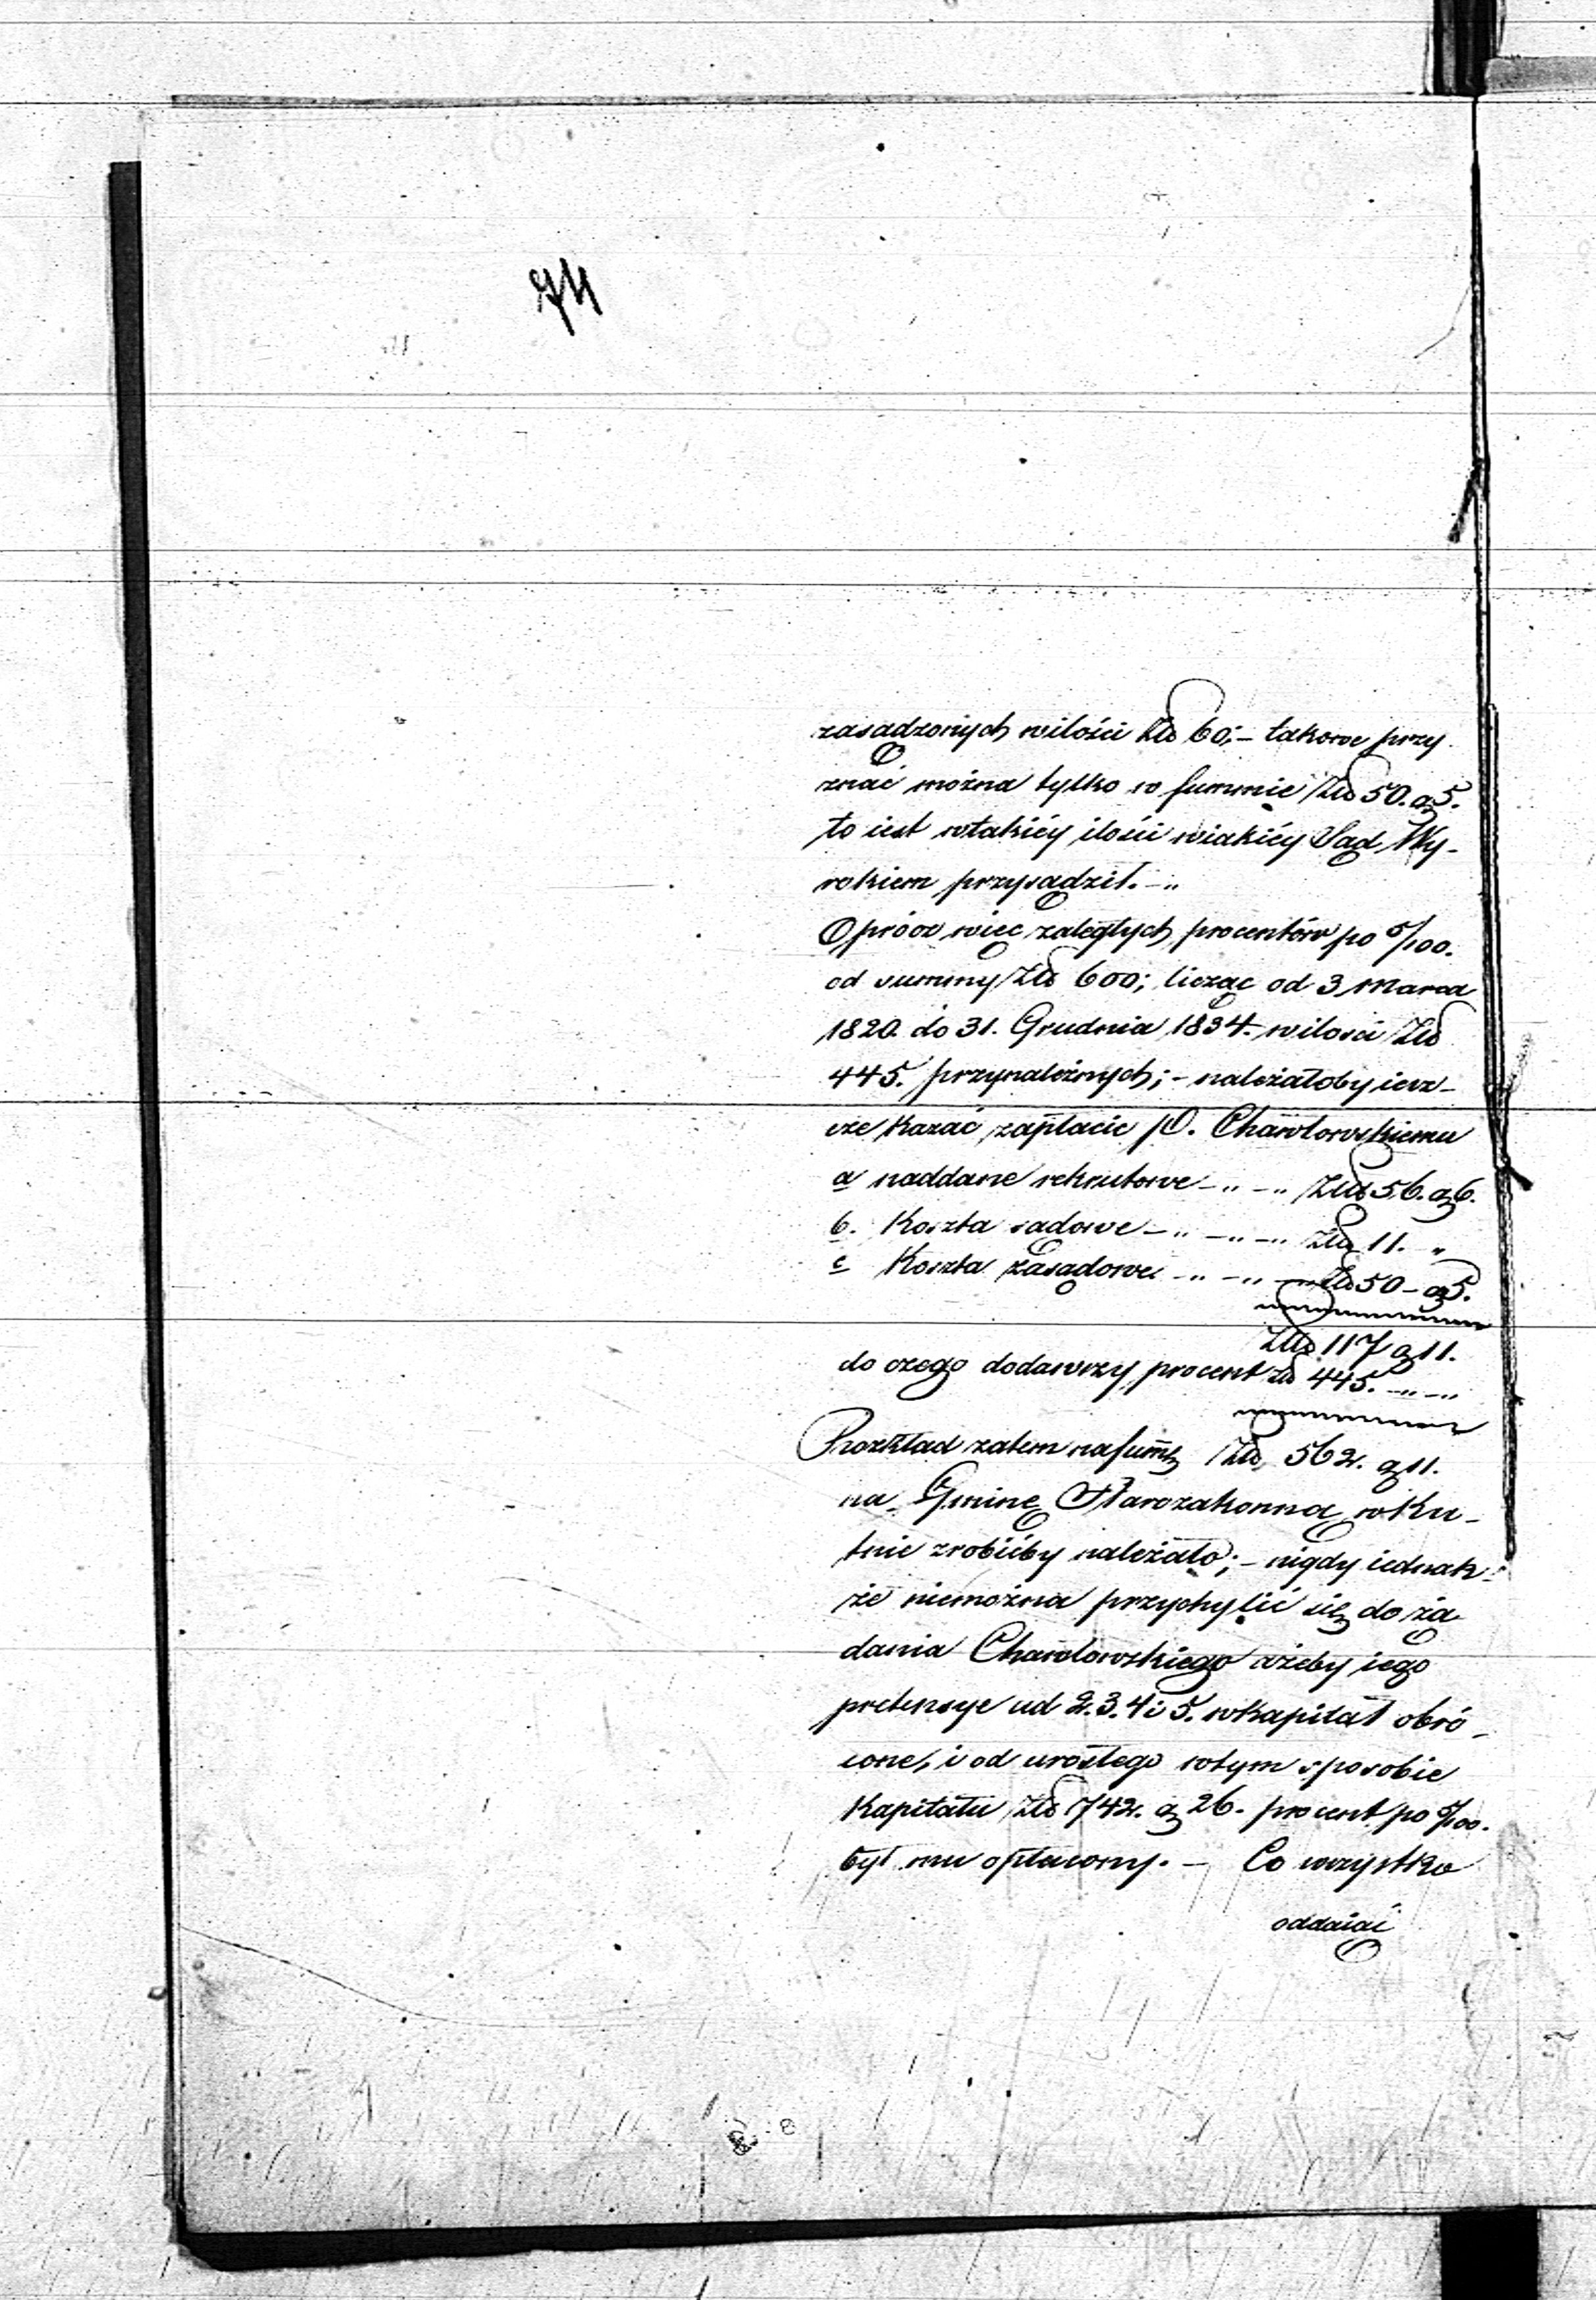 94
zasądzonych wilości Złd 60;- takowe przy
znać można tylko w summie Złd 50. g 5.
to iest wtakiéy ilości wiakiéy Sąd Wy-
rokiem przysądził.-"
Oprócz więc zaległych procentów po 5/100.
od summy Złd 600; licząc od 3 Marca
1820. do 31. Grudnia 1834. wilości Złd
445. przynależnych;- należałoby iesz-
cze kazać zapłacić P. Chawłowskiemu
a naddane rekrutowe -"-" Złd 56. g 6.
b. Koszta sądowe -"-"-" Złd 11. "
c Koszta zasądowe -"-"- Złd 50 - g 5.
Złd 117 g 11.
do czego dodawszy procent Złd 445. -"-"
Rozkład zatem na summę Złd 562. g 11.
na Gminę Starozakonną w Ku-
tnie zrobićby należało;- nigdy iednak-
że niemożna przychylić się do żą
dania Chawłowskiego ażeby iego
pretensye ad 2. 3. 4 i 5. wkapitał obró-
cone, i od urosłego wtym sposobie
Kapitału Złd 742. g 26. procent po 5/100.
był mu opłacony. - Co wszystko
oddaiąć